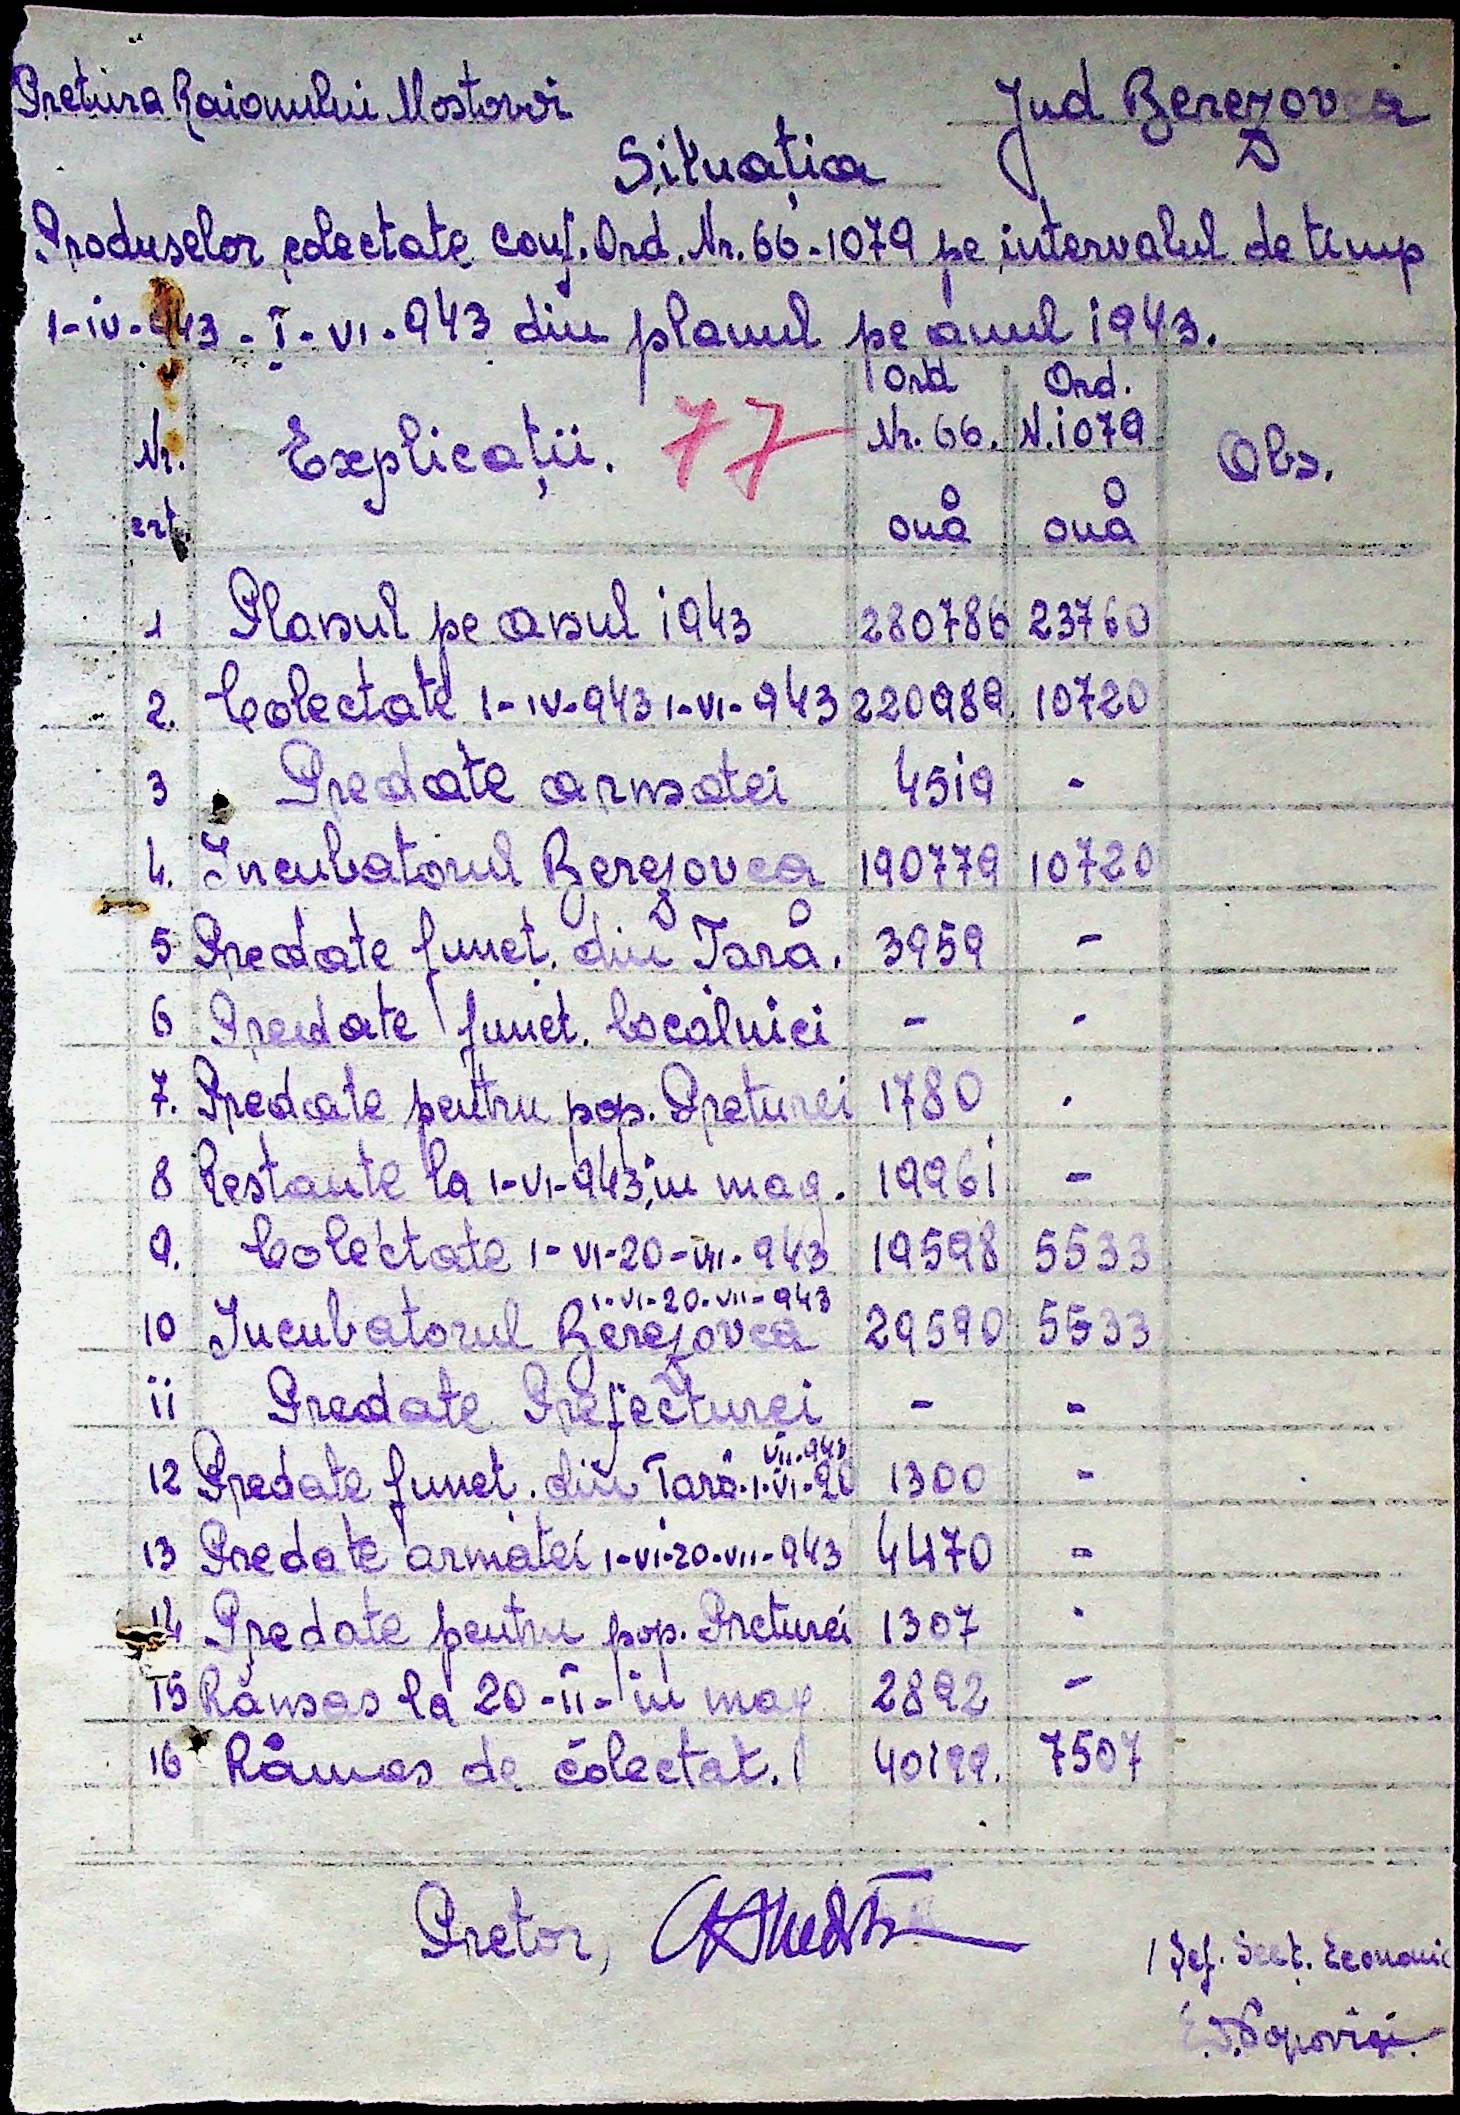 Pretura Raionului Mostovoi Jud Berezovca
Situația
Produselor colectate conf. Ord. Nr. 66-1079 pe intervalul de timp
1-IV-943 - I-VI-943 din planul pe anul 1943.
Nr. crt. Explicații. 77 Ord Nr. 66. ouă Ord. N. 1079 ouă Obs.
1 Planul pe anul 1943 280786 23760
2. Colectate 1-IV-943 1-VI-943 220989 10720
3 Predate armatei 4519 -
4. Incubatorul Berezovca 190779 10720
5 Predate funct. din Țară. 3959 -
6 Predate funct. localnici - -
7. Predate pentru pop. Preturei 1780 -
8 Restante la 1-VI-943 in mag. 19961 -
9. Colectate 1-VI-20-VII-943 19598 5533
10 Incubatorul Berezovca 1-VI-20-VII-943 29590 5533
11 Predate Prefecturei - -
12 Predate funct. din Țară. 1-VI-20 VII-943 1300 -
13 Predate armatei 1-VI-20-VII-943 4470 -
14 Predate pentru pop. Preturei 1307 -
15 Rămas la 20-II- in mag 2892 -
16 Rămas de colectat. 40199. 7507
Pretor,
Șef. Secț. Economic
Popovici